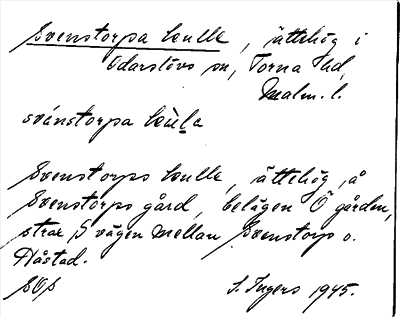 Svenstorpa kulle, ättehög i
Odarslövs sn, Torna hd,
Malm. l.
svánstorpa kùla
Svenstorps kulle, ättehög, å
Svenstorps gård, belägen Ö gården,
strax S vägen mellan Svenstorp o.
Håstad.
SOS
S. Ingers 1945.